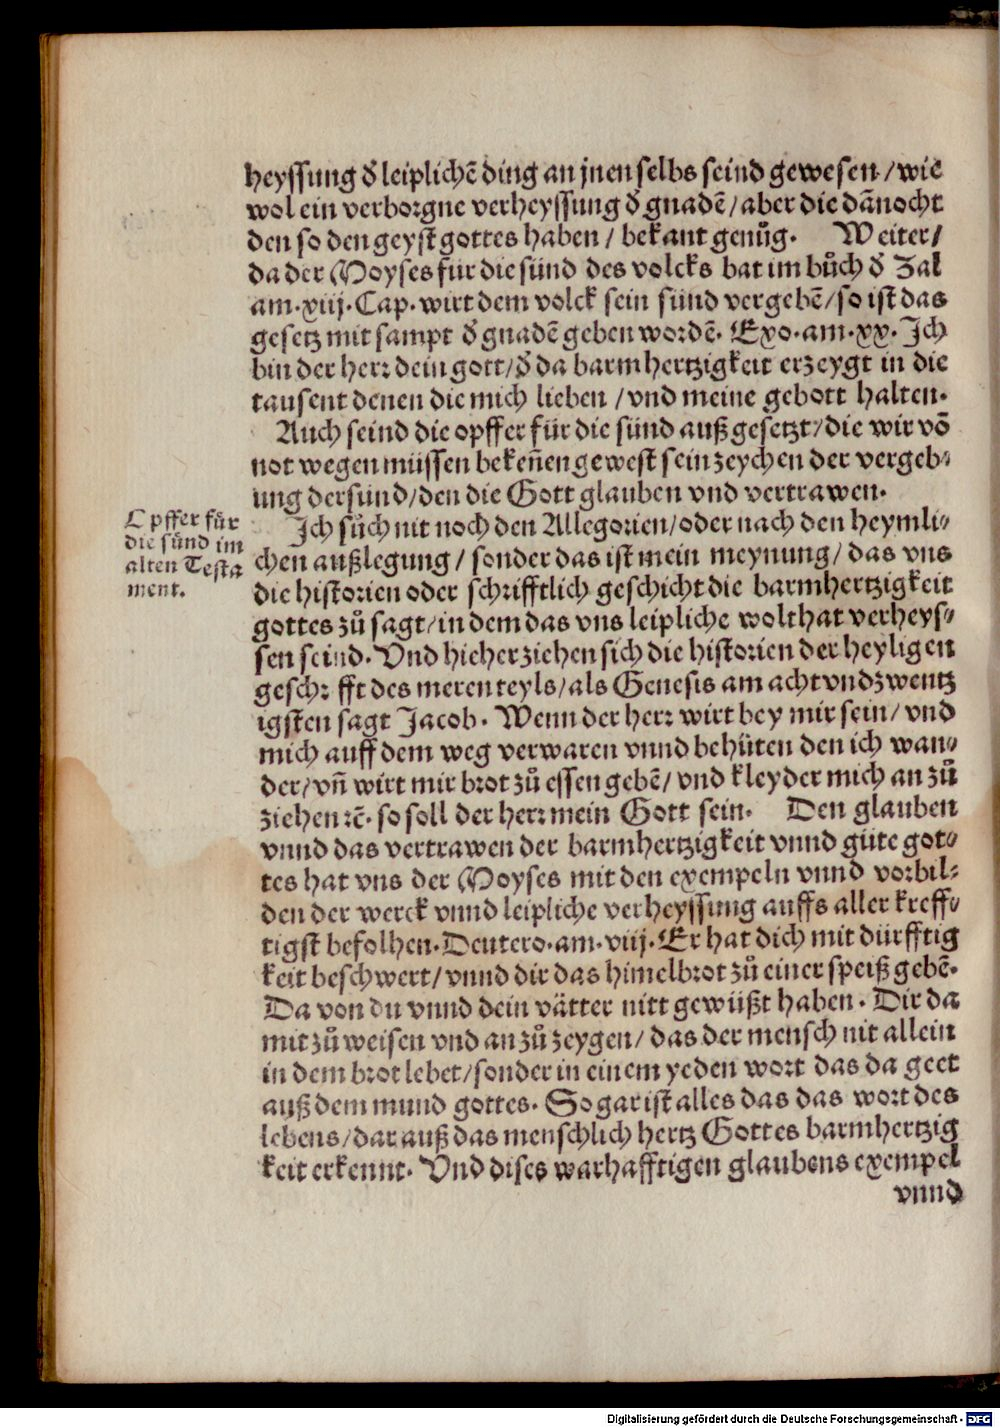 heyssung ð leiplichē ding an jnen selbs seind gewesen / wie
wol ein verborgne verheyssung ð gnadē / aber die dānocht
den so den geyst gottes haben / bekant genůg. Weiter /
da der Moyses für die sünd des volcks bat im bůch ð Zal
am.xiij. Cap. wirt dem volck sein sünd vergebē / so ist das
gesetz mit sampt ð gnadē geben wordē. Exo. am.xx. Ich
bin der herr dein gott / ð da barmhertzigkeit erzeygt in die
tausent denen die mich lieben / vnd meine gebott halten.
Auch seind die opffer für die sünd außgesetzt / die wir vō
not wegen müssen bekeñen gewest sein zeychen der vergeb⸗
ung der sünd / den die Gott glauben vnd vertrawen.
Opffer für
die sünd im
alten Testa
ment.
Ich sůch nit noch den Allegorien / oder nach den heymli⸗
chen außlegung / sonder das ist mein meynung / das vns
die historien oder schrifftlich geschicht die barmhertzigkeit
gottes zů sagt / in dem das vns leipliche wolthat verheys⸗
sen seind. Vnd hieher ziehen sich die historien der heyligen
geschr fft des meren teyls / als Genesis am acht vnd zwentz
igsten sagt Jacob. Wenn der herr wirt bey mir sein / vnd
mich auff dem weg verwaren vnnd behüten den ich wan⸗
der / vñ wirt mir brot zů essen gebē / vnd kleyder mich an zů
ziehen ꝛc̄. so soll der herr mein Gott sein. Den glauben
vnnd das vertrawen der barmhertzigkeit vnnd güte got⸗
tes hat vns der Moyses mit den exempeln vnnd vorbil⸗
den der werck vnnd leipliche verheyssung auffs aller kreff⸗
tigst befolhen. Deutero. am.viij. Er hat dich mit dürfftig
keit beschwert / vnnd dir das himelbrot zů einer speiß gebē.
Da von du vnnd dein vätter nitt gewüßt haben. Dir da
mit zů weisen vnd an zů zeygen / das der mensch nit allein
in dem brot lebet / sonder in einem yeden wort das da geet
auß dem mund gottes. So gar ist alles das das wort des
lebens / dar auß das menschlich hertz Gottes barmhertzig
keit erkennt. Vnd dises warhafftigen glaubens exempel
vnnd
Digitalisierung gefördert durch die Deutsche Forschungsgemeinschaft - DFG